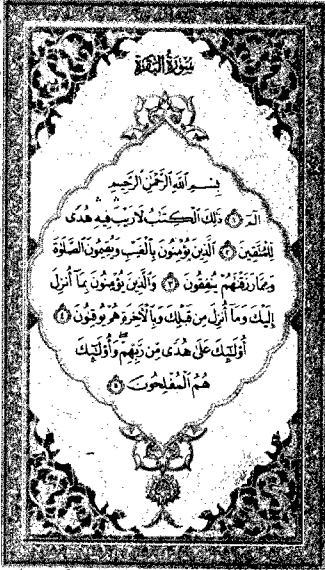 سُورَةُ الْبَقَرَةِ
بِسْمِ اللَّهِ الرَّحْمَٰنِ الرَّحِيمِ
الٓمٓ ۝١ ذَٰلِكَ الْكِتَٰبُ لَا رَيْبَ ۛ فِيهِ ۛ هُدًى
لِّلْمُتَّقِينَ ۝٢ الَّذِينَ يُؤْمِنُونَ بِالْغَيْبِ وَيُقِيمُونَ الصَّلَوٰةَ
وَمِمَّا رَزَقْنَٰهُمْ يُنفِقُونَ ۝٣ وَالَّذِينَ يُؤْمِنُونَ بِمَآ أُنزِلَ
إِلَيْكَ وَمَآ أُنزِلَ مِن قَبْلِكَ وَبِالْءَاخِرَةِ هُمْ يُوقِنُونَ ۝٤
أُو۟لَٰٓئِكَ عَلَىٰ هُدًى مِّن رَّبِّهِمْ ۖ وَأُو۟لَٰٓئِكَ
هُمُ الْمُفْلِحُونَ ۝٥